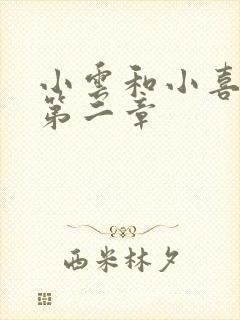 小雲和小喜
第二章
西米林夕